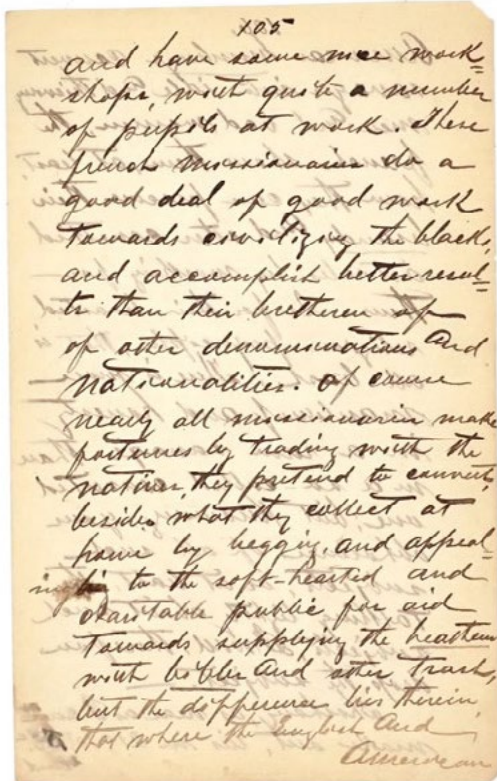 105
and have some nice work=
shops, with quite a number
of pupils at work. These
french missionaries do a
good deal of good work
towards civilizing the blacks,
and accomplish better resul=
ts than their bretheren of
of other denominations and
nationalities. Of course
nearly all missionaries make
fortunes by trading with the
natives, they pretend to convert,
besides what they collect at
home by begging, and appeal=
ing to the soft-hearted and
charitable public for aid
towards supplying the heathens
with bibles and other trash,
but the difference lies therein
that where the English and
American